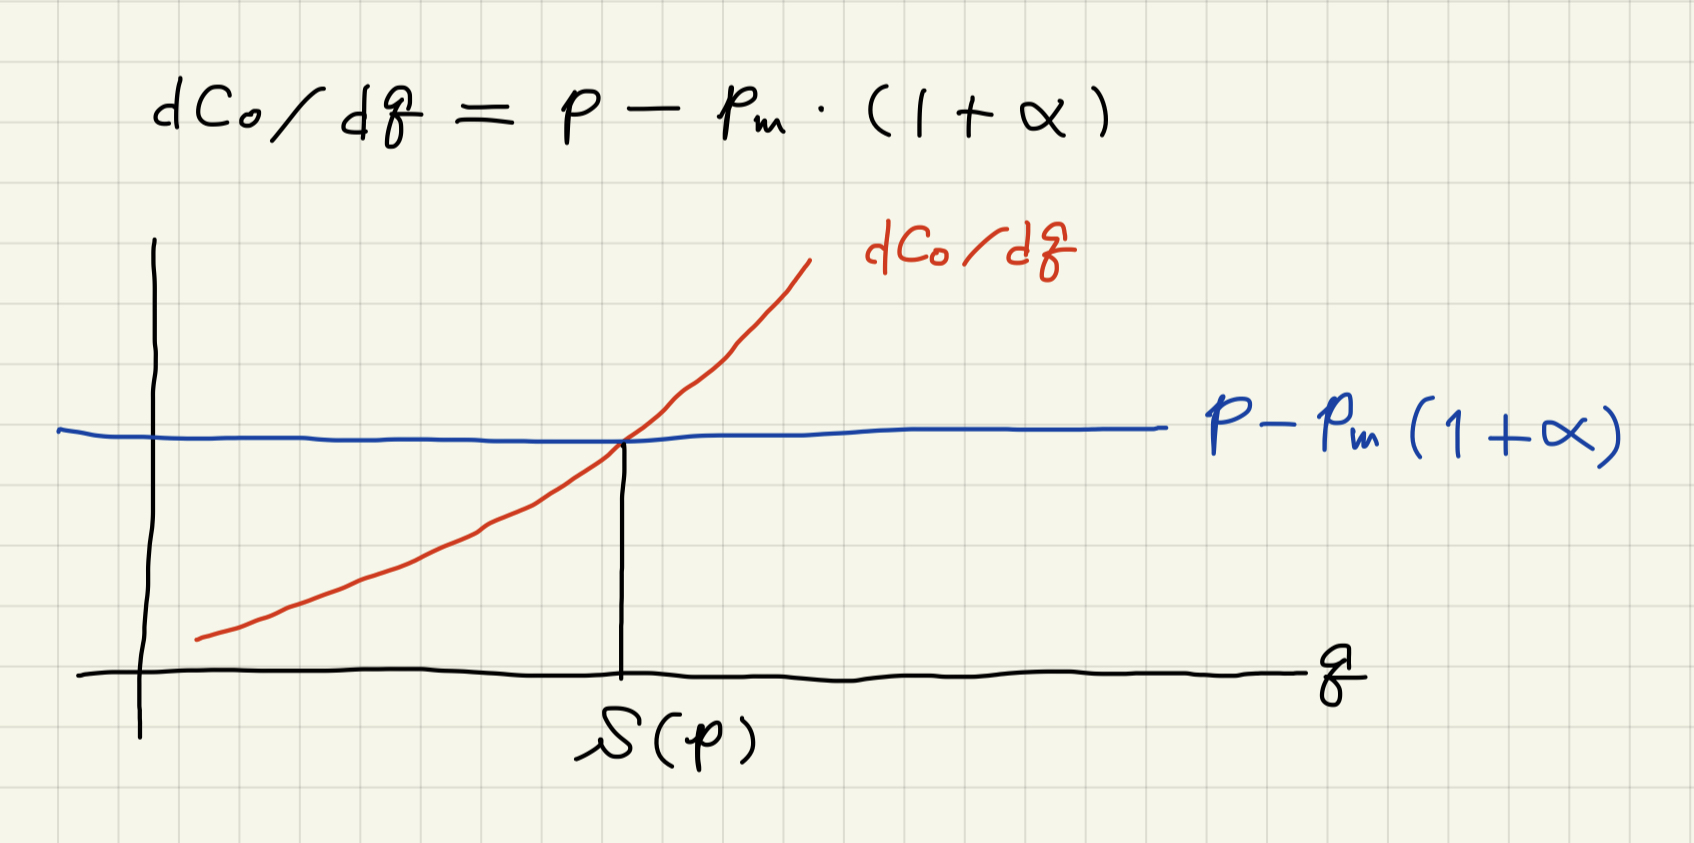 dCo/dq = p - pm · (1 + α)
dCo/dq
p - pm (1 + α)
q
S(p)